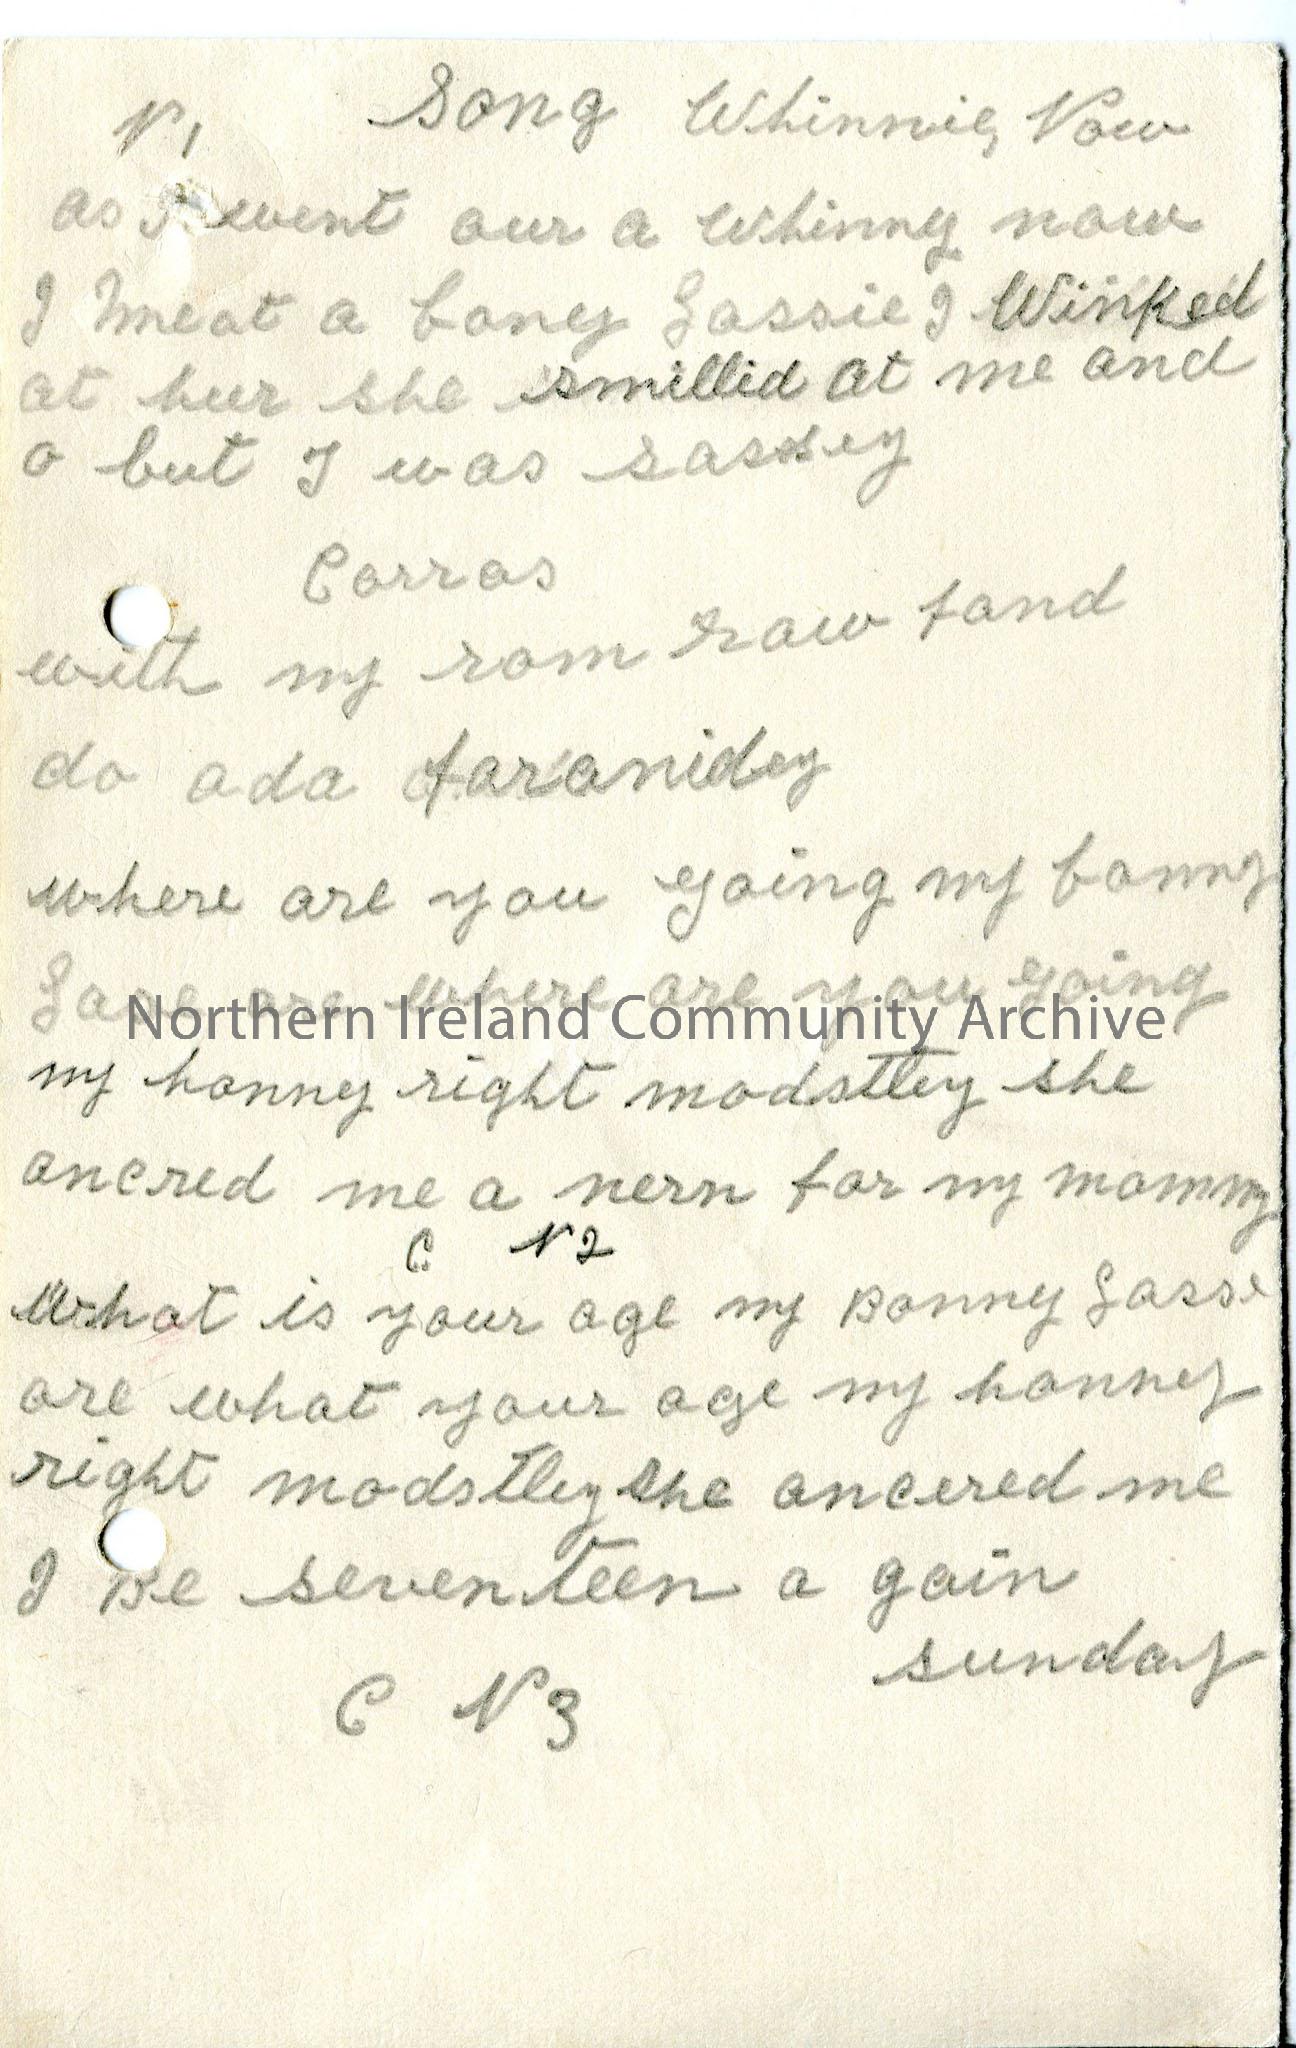 V 1 Song Whinnie, Now
as I went our a Whinny now
I meat a boney Lassie I Winked
at hur she smillid at me and
o but I was sassey
Corras
with my rom raw fand
do ada faranidey
where are you going my bonny
Lase are where are you going
my honney right modsttey she
ancred me a nern for my mommy
C V 2
What is your age my Bonney Lasse
are what your age my honney
right modstley she ancered me
I Be seventeen a gain
sunday
C V 3
Northern Ireland Community Archive